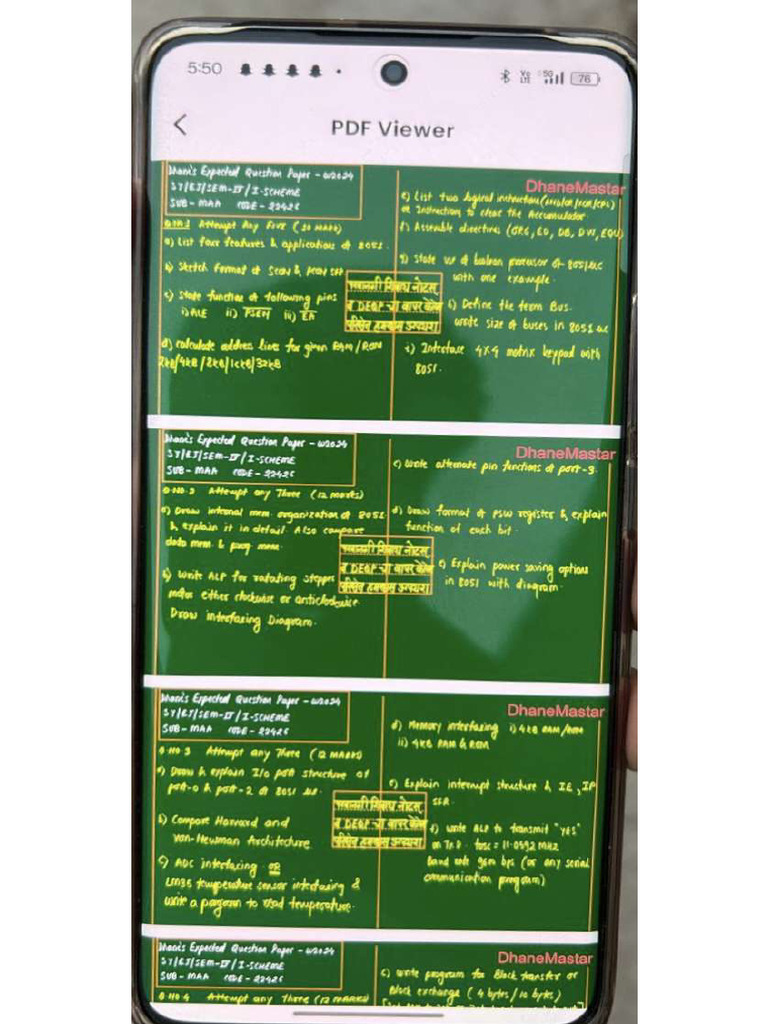 5:50
76
PDF Viewer
DhaneMastar
Dhane's Expected Question Paper - W2024
SY/EJ/SEM-IV/I-SCHEME
SUB - MAA CODE - 22426
Q.NO.1 Attempt Any Five (20 Marks)
a) List four features & applications of 8051.
b) Sketch format of SCON & PCON SFR
c) State function of following pins
i) ALE ii) PSEN iii) EA
d) calculate address lines for given RAM/ROM
2KB/4KB/8KB/1KB/32KB
e) List two logical instruction
or Instruction to clear the Accumulator
f) Assembler directives (ORG, EQ, DB, DW, EQU)
g) State use of boolean processor of 8051 uc
with one example.
h) Define the term Bus.
write size of buses in 8051 uc
i) Interface 4x4 matrix keypad with
8051.
DhaneMastar
Dhane's Expected Question Paper - W2024
SY/EJ/SEM-IV/I-SCHEME
SUB - MAA CODE - 22426
Q.NO.2 Attempt any Three (12 marks)
a) Draw internal mem. organization of 8051
& explain it in detail Also compare
data mem & prog mem.
b) Write ALP for rotating stepper
motor either clockwise or anticlockwise
Draw interfacing Diagram.
c) Write alternate pin functions of port-3.
d) Draw format of PSW register & explain
function of each bit.
e) Explain power saving options
in 8051 with diagram.
DhaneMastar
Dhane's Expected Question Paper - W2024
SY/EJ/SEM-IV/I-SCHEME
SUB - MAA CODE - 22426
Q NO 3 Attempt any Three (12 MARKS)
a) Draw & explain I/O port structure of
port-0 & port-2 of 8051 uc.
b) Compare Harvard and
Von-Newman Architecture
c) ADC interfacing OR
LM35 temperature sensor interfacing &
write a program to read temperature.
d) Memory interfacing i) 4KB RAM/ROM
ii) 4KB RAM & ROM
e) Explain interrupt structure & IE, IP
SFR.
f) Write ALP to transmit "YES"
on TXD. fosc = 11.0592 MHz
Baud rate 9600 bps (or any serial
communication program)
DhaneMastar
Dhane's Expected Question Paper - W2024
SY/EJ/SEM-IV/I-SCHEME
SUB - MAA CODE - 22426
Q NO 4 Attempt any Three (12 MARKS)
c) Write program for Block transfer or
Block exchange (4 bytes/10 bytes)